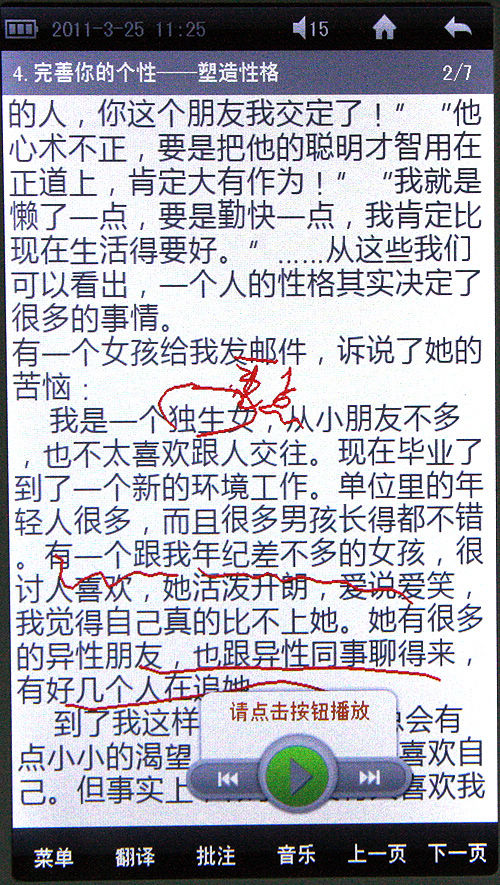 2011-3-25 11:25 15
4.完善你的个性——塑造性格 2/7
的人，你这个朋友我交定了！” “他
心术不正，要是把他的聪明才智用在
正道上，肯定大有作为！” “我就是
懒了一点，要是勤快一点，我肯定比
现在生活得要好。” ……从这些我们
可以看出，一个人的性格其实决定了
很多的事情。
有一个女孩给我发邮件，诉说了她的
苦恼：
我是一个独生女，从小朋友不多
，也不太喜欢跟人交往。现在毕业了
到了一个新的环境工作。单位里的年
轻人很多，而且很多男孩长得都不错
。有一个跟我年纪差不多的女孩，很
讨人喜欢，她活泼开朗，爱说爱笑，
我觉得自己真的比不上她。她有很多
的异性朋友，也跟异性同事聊得来，
有好几个人在追她
到了我这样 会有
点小小的渴望 喜欢自
己。但事实上 喜欢我
请点击按钮播放
菜单 翻译 批注 音乐 上一页 下一页